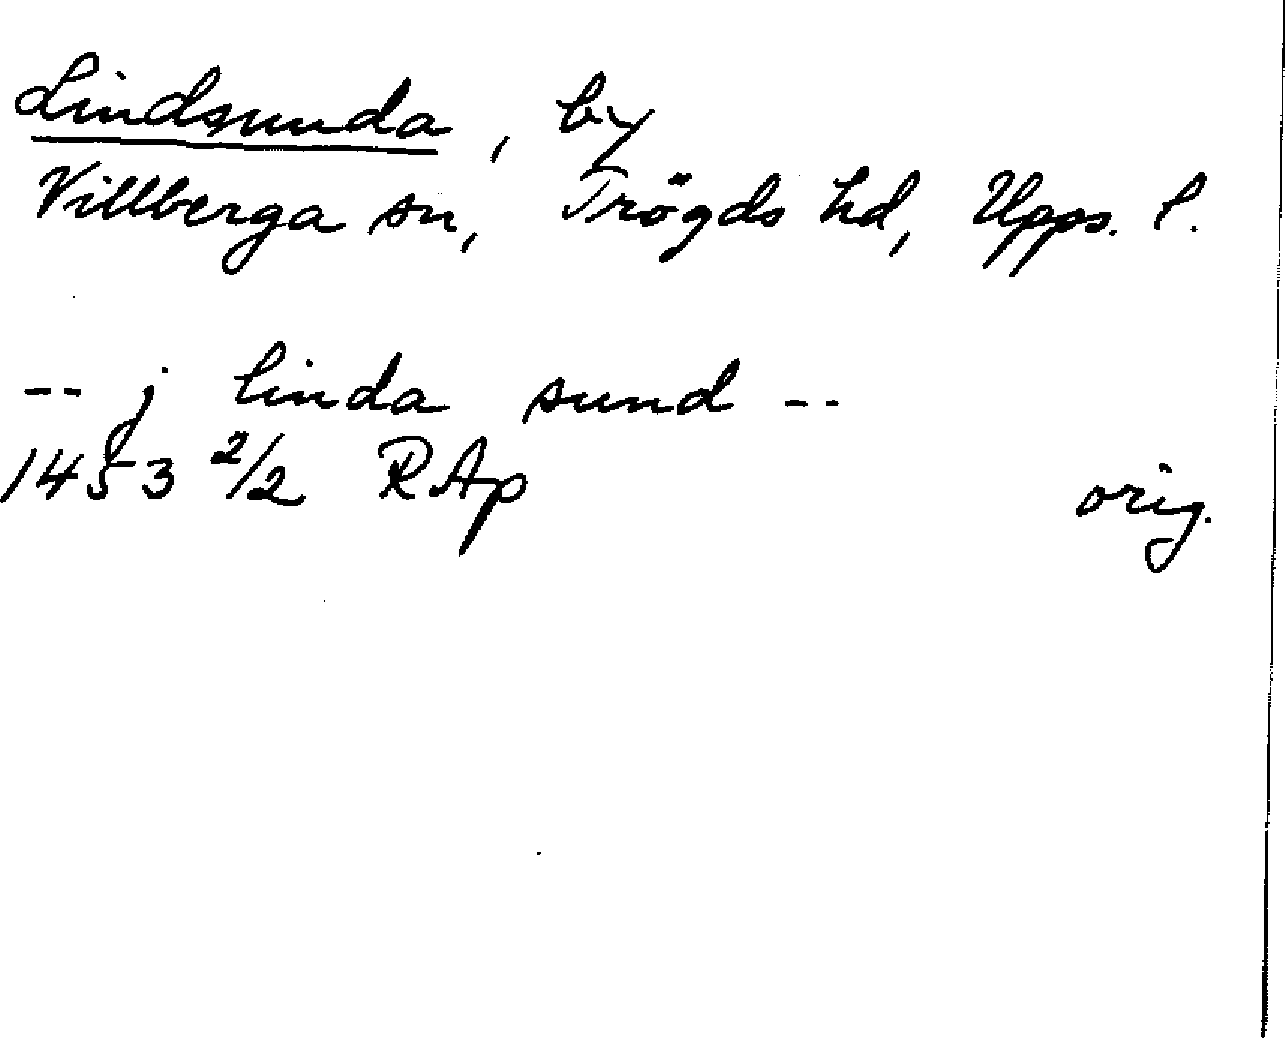 Lindsunda, by
Villberga sn, Trögds hd, Upps. l.
-- j linda sund --
1453 2/2 RAp
orig.